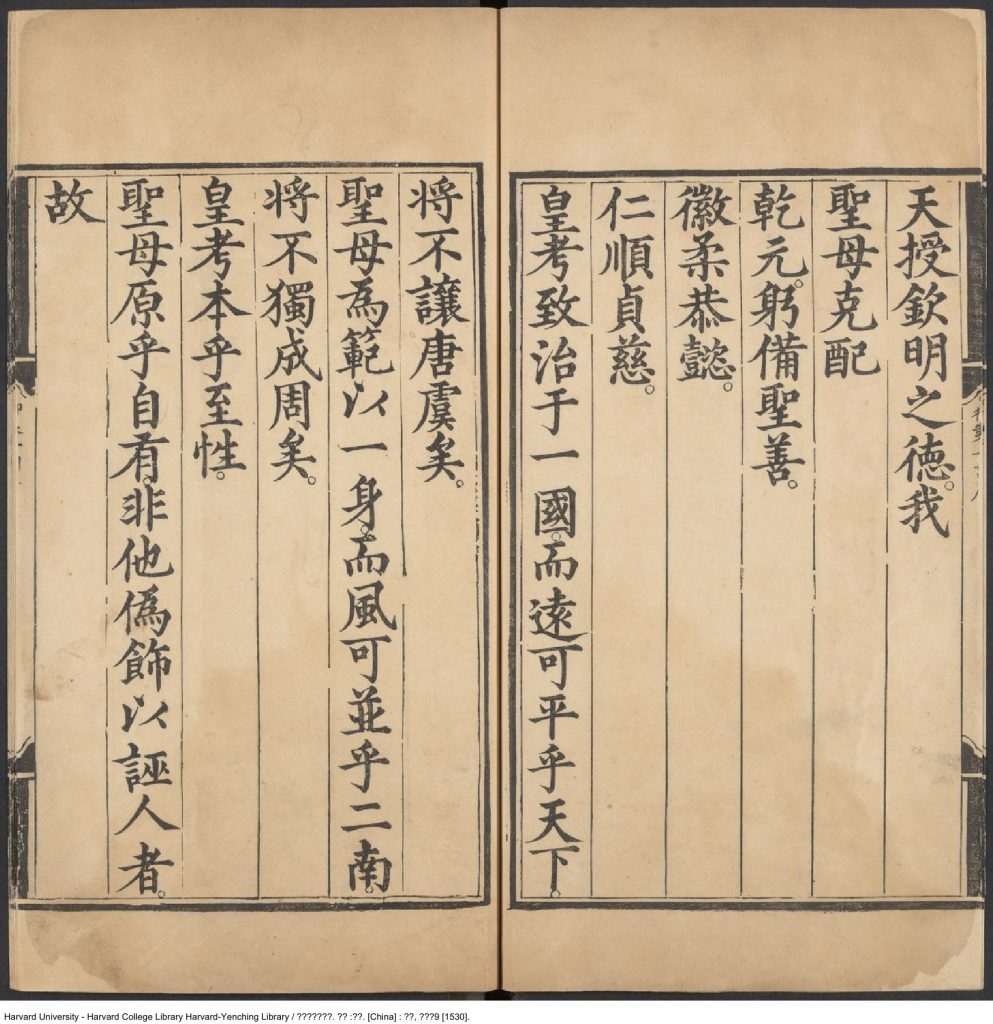 天授欽明之德。我
聖母克配
乾元。躬備聖善。
徽柔恭懿。
仁順貞慈。
皇考致治于一國。而遠可平乎天下。
將不讓唐虞矣。
聖母為範以一身。而風可並乎二南。
將不獨成周矣。
皇考本乎至性。
聖母原乎自有。非他偽飾以誣人者。
故
Harvard University - Harvard College Library Harvard-Yenching Library / ???????. ?? :??. [China] : ??, ???9 [1530].